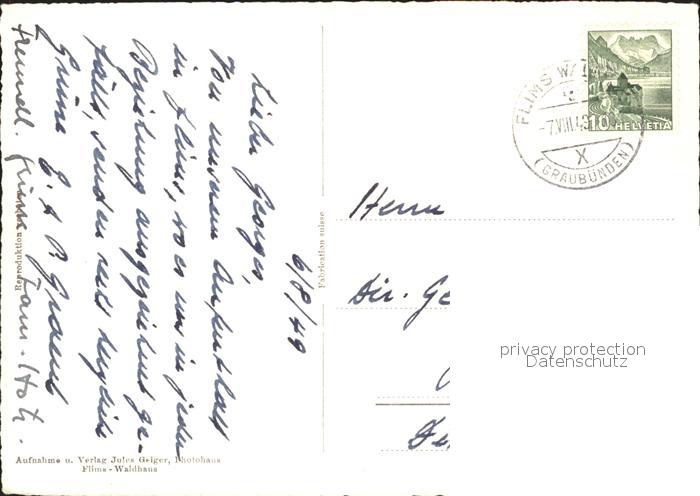 6/8/49
Lieber Georges,
Von unserem Aufenthalt
in Flims, wo es uns in jeder
Beziehung ausgezeichnet ge-
fällt, senden recht herzliche
Grüsse
Freundl. Grüsse Fam.
Herrn
Dir. Ge
FLIMS WALDHAUS
-7.VIII.49
X
(GRAUBÜNDEN)
10 HELVETIA
privacy protection
Datenschutz
Fabrication suisse
Reproduktion
Aufnahme u. Verlag Jules Geiger, Photohaus
Flims-Waldhaus